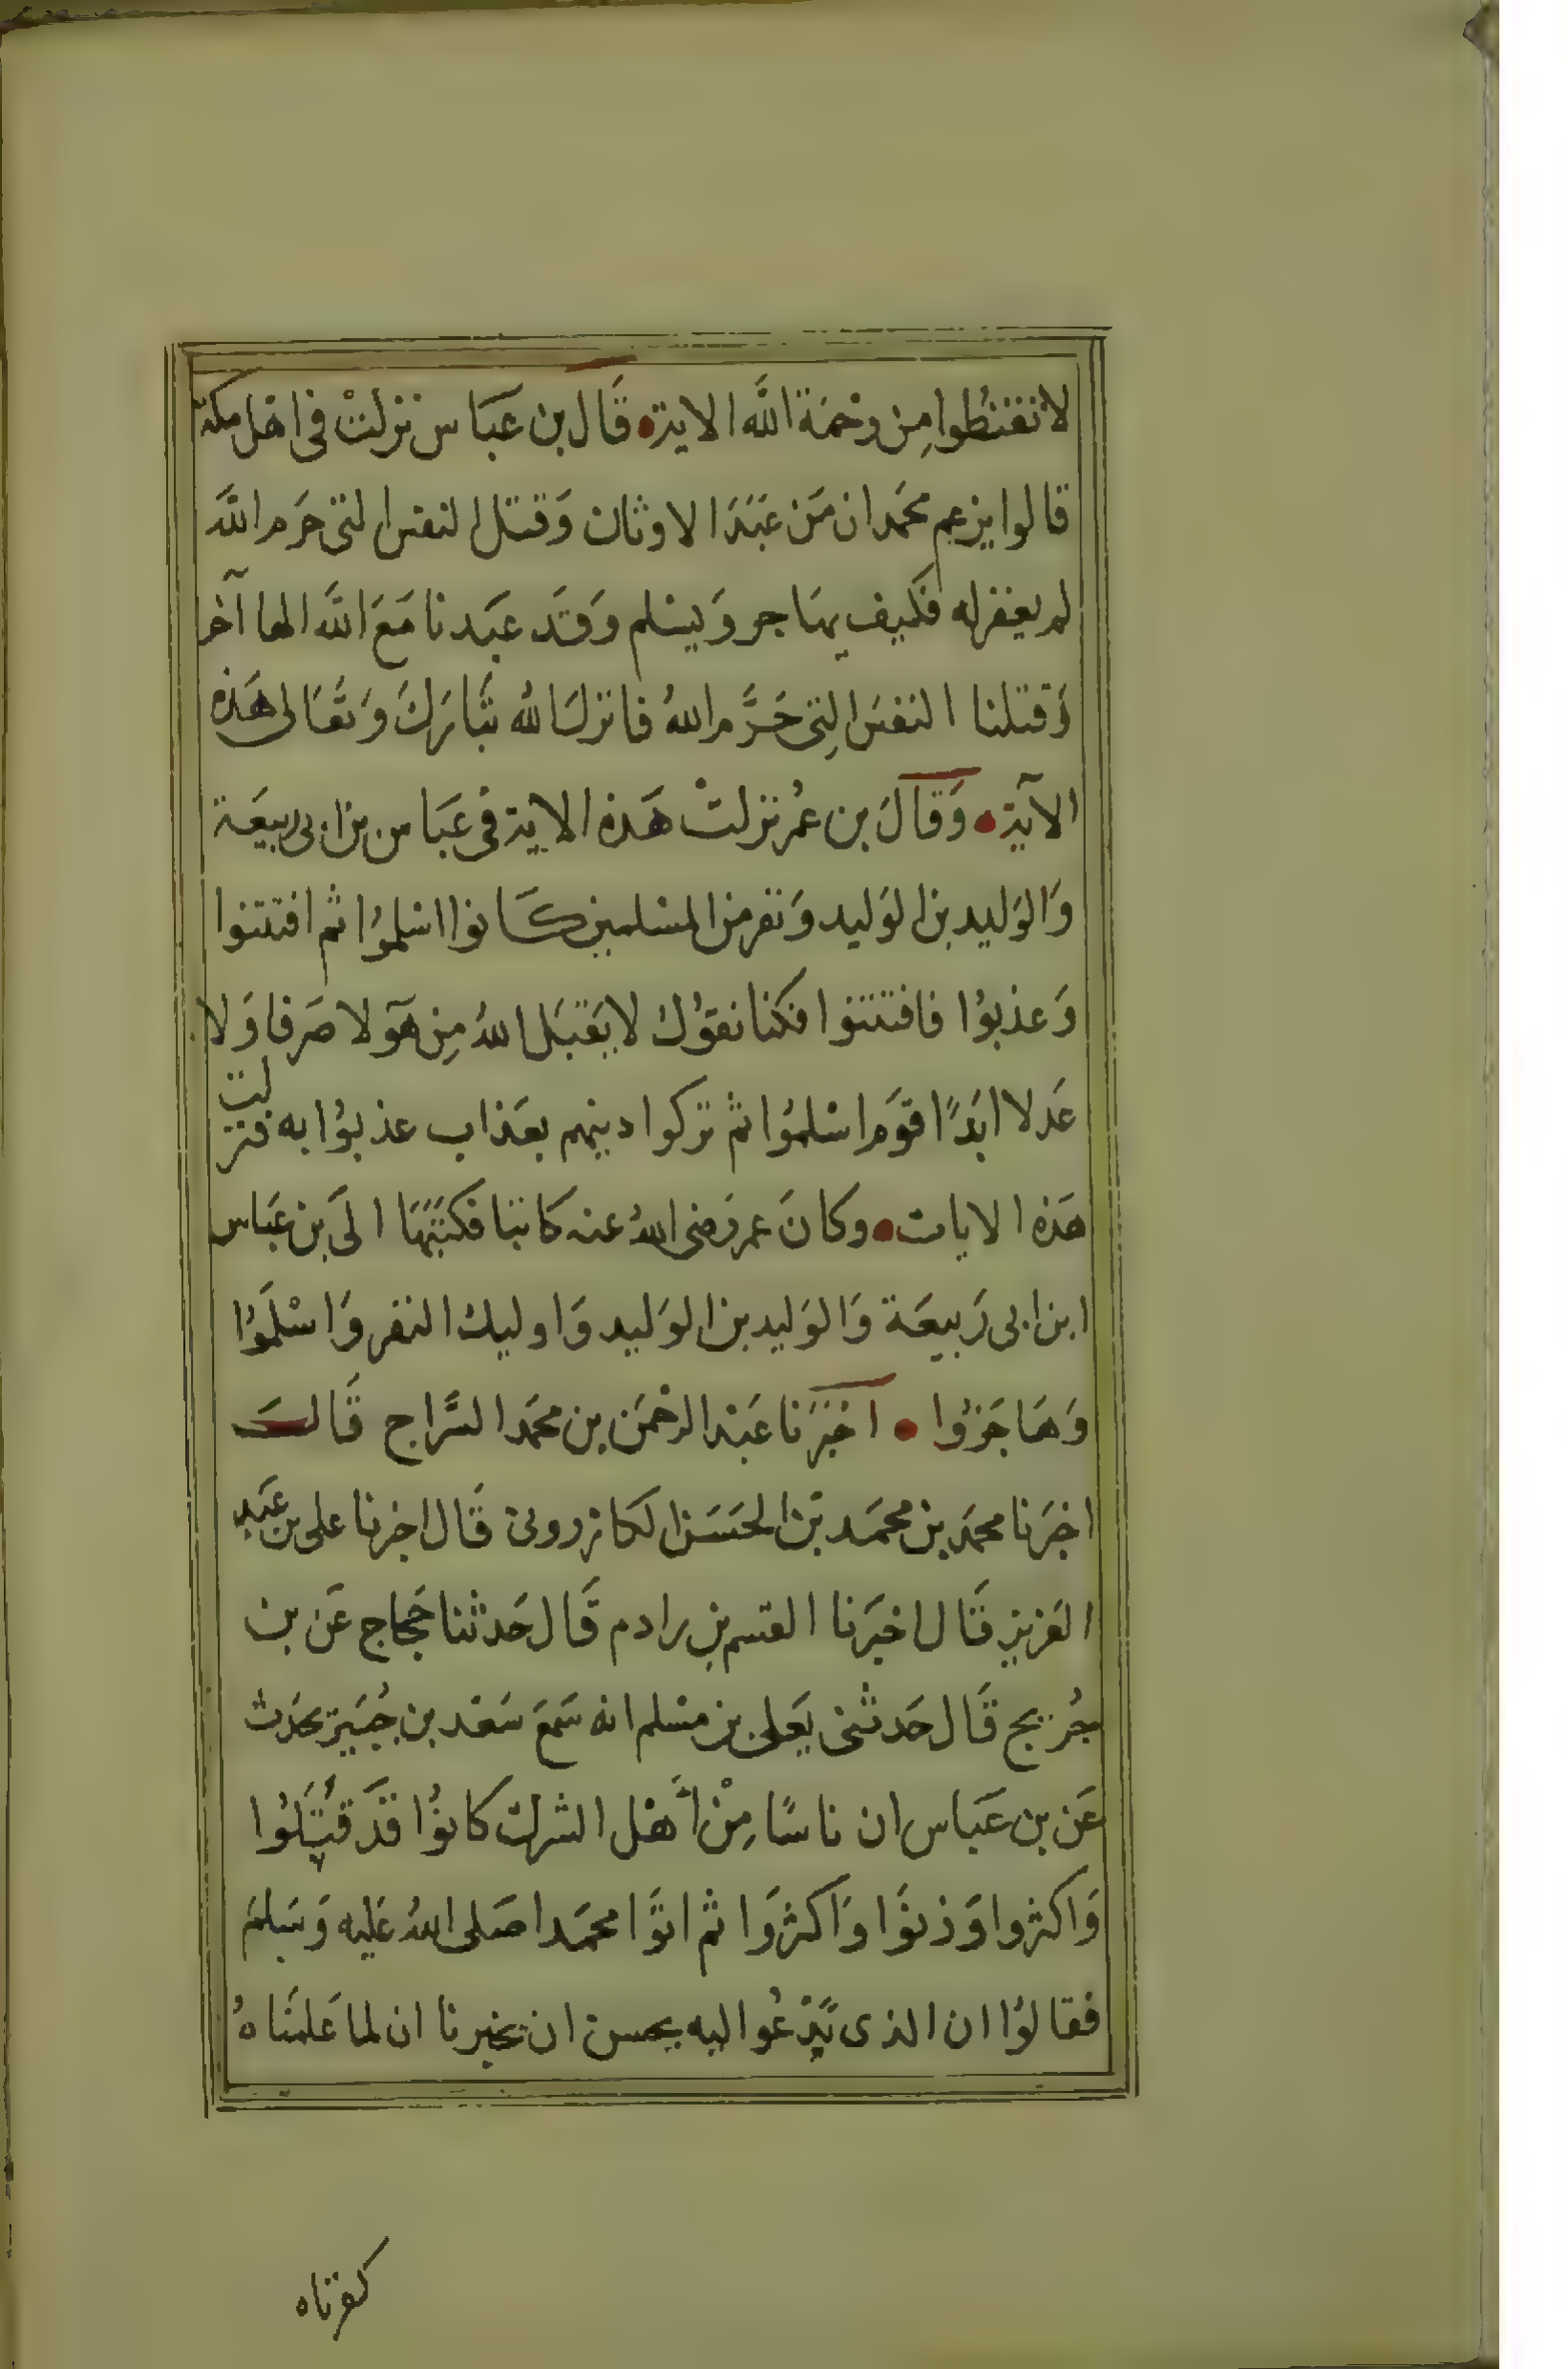 لا تقنطوا مِن رحْمَة الله الاية قَال بن عَبَاس نزلتْ فى اهْل مكة
قالوا يزعم محَمد ان مَن عَبَدَ الاوثان وَقتل النفس التى حَرم الله
لم يغفر له فكيف يهَاجر وَيسْلم وَقَد عَبَدنا مَعَ الله الها آخر
وَقتلنا النفسَ التِى حَرَّم اللهُ فانزلَ اللهُ تَبَارَكَ وَتَعَالى هَذه
الآية وَقَالَ بن عُمر نزلتْ هَذه الاية فى عَبَاس بن ابى ربيعَة
وَالوَليد بن الوَليد وَنفر من المسْلمين كَانوا اسْلموُا ثم افتتنوا
وَعذبوُا فافتتنوا فكنا نقوُل لا يَقبَل اللهُ مِن هَؤلا صَرفا وَلا
عَدلا ابَدًا قوَم اسْلموُا ثم تركوا دينهم بعَذاب عذبوُا به فنزلت
هَذه الايات وكانَ عمر رَضى اللهُ عنه كاتبا فكتبَهَا الَى بن عَباس
ابن ابى رَبيعَة وَالوَليد بن الوَليد وَاوليك النفر وَاسْلَموُا
وَهَاجَرُوا اخبَرَنا عَبْد الرحْمَن بن محمَد السَّراج قَالَ
اخبَرنا محمَد بن محمَد بن الحَسَن الكازرونى قَال اخبرنا على بن عَبَد
العَزيز قَال اخبَرنا القسم بن رادم قَال حَدثنا حَجاج عَن بن
جُريج قَال حَدثنى يَعلى بن مسْلم انه سَمعَ سَعْد بن جُبَير يحَدث
عَن بن عَبَاس ان ناسًا مِنْ أَهْل الشرك كانوُا قَد قَتَلوُا
وَاكثروا وَزنوَا وَاكثروَا ثم اتوَا محمَدا صَلى اللهُ عَليه وَسَلم
فقالوُا ان الذى تَدْعُو اليه يحسن ان تخبرنا ان لما عَلمنَاهُ
كفرتاه